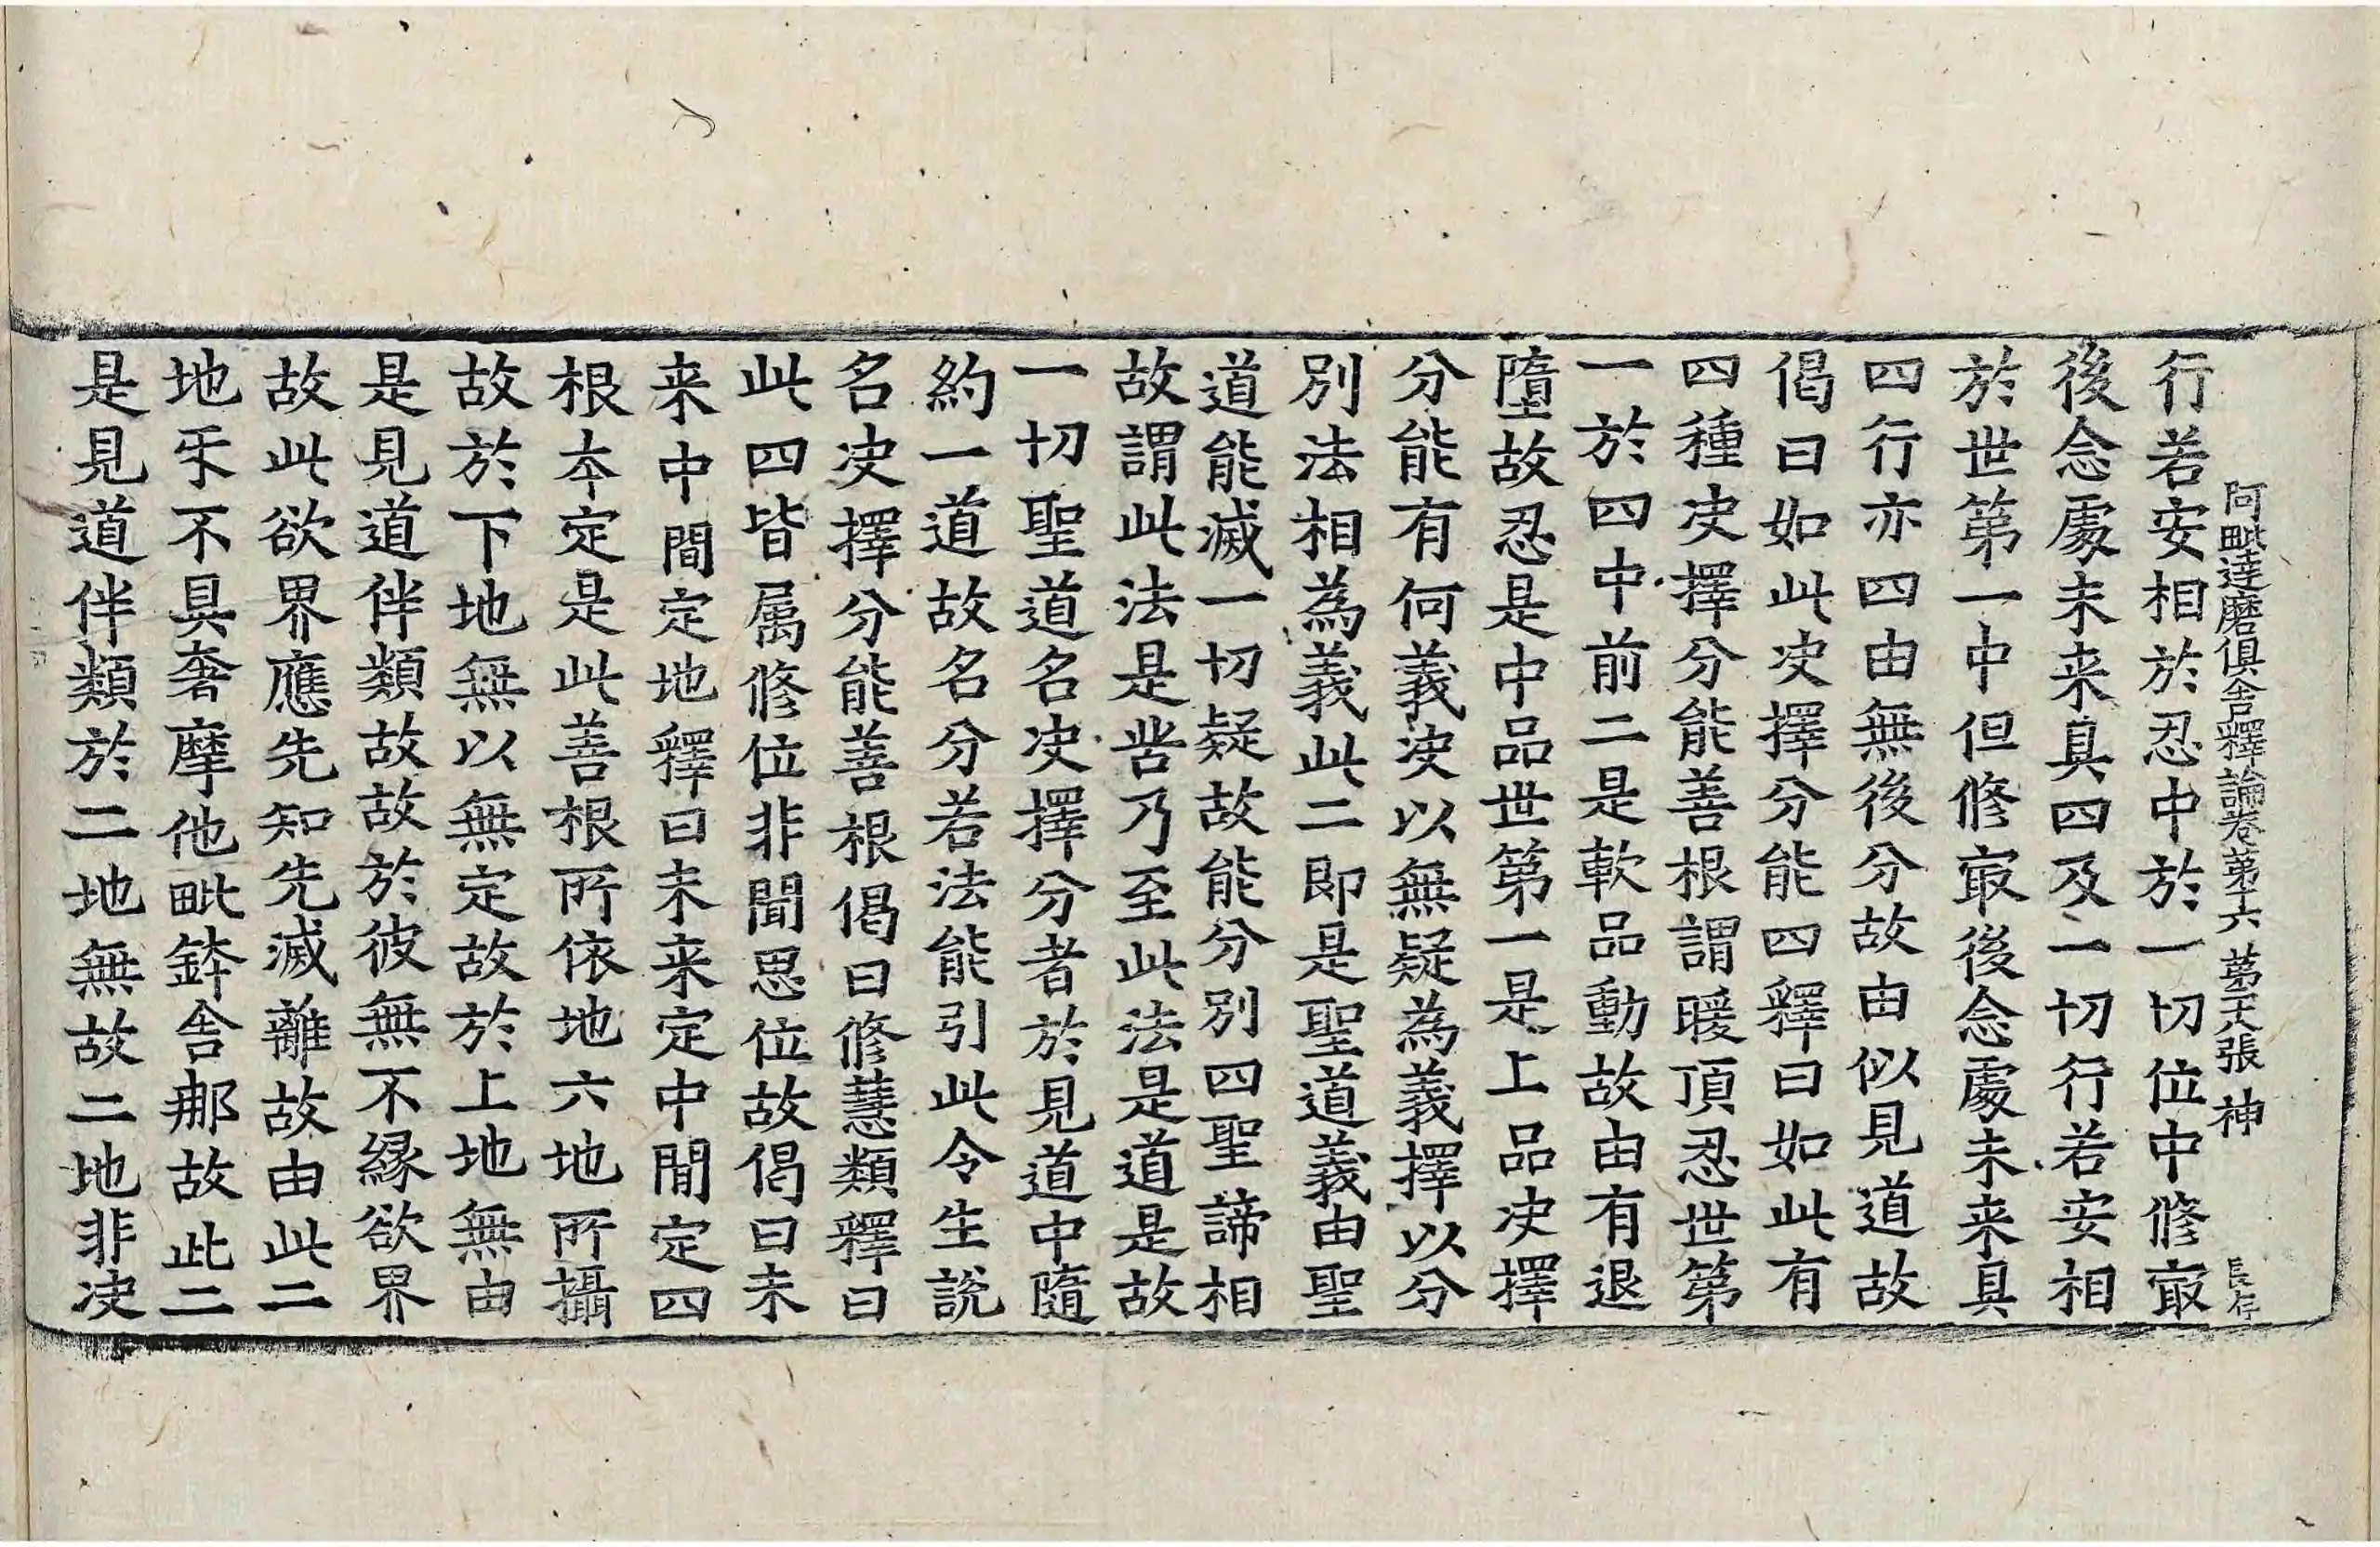 阿毗達磨俱舍釋論卷第十六 第五張 神
行若安相於忍中於一切位中修㝡
後念處未来具四及一切行若安相
於世第一中但修㝡後念處未来具
四行亦四由無後分故由似見道故
偈曰如此决擇分能四釋曰如此有
四種决擇分能善根謂暖頂忍世第
一於四中前二是軟品動故由有退
墮故忍是中品世第一是上品决擇
分能有何義决以無疑為義擇以分
別法相為義此二即是聖道義由聖
道能滅一切疑故能分別四聖諦相
故謂此法是苦乃至此法是道是故
一切聖道名决擇分者於見道中隨
約一道故名分若法能引此令生說
名决擇分能善根偈曰修慧類釋曰
此四皆属修位非聞思位故偈曰未
来中間定地釋曰未来定中間定四
根本定是此善根所依地六地所攝
故於下地無以無定故於上地無由
是見道伴類故故於彼無不縁欲界
故此欲界應先知先滅離故由此二
地㸦不具奢摩他毗鉢舍那故此二
是見道伴類於二地無故二地非决